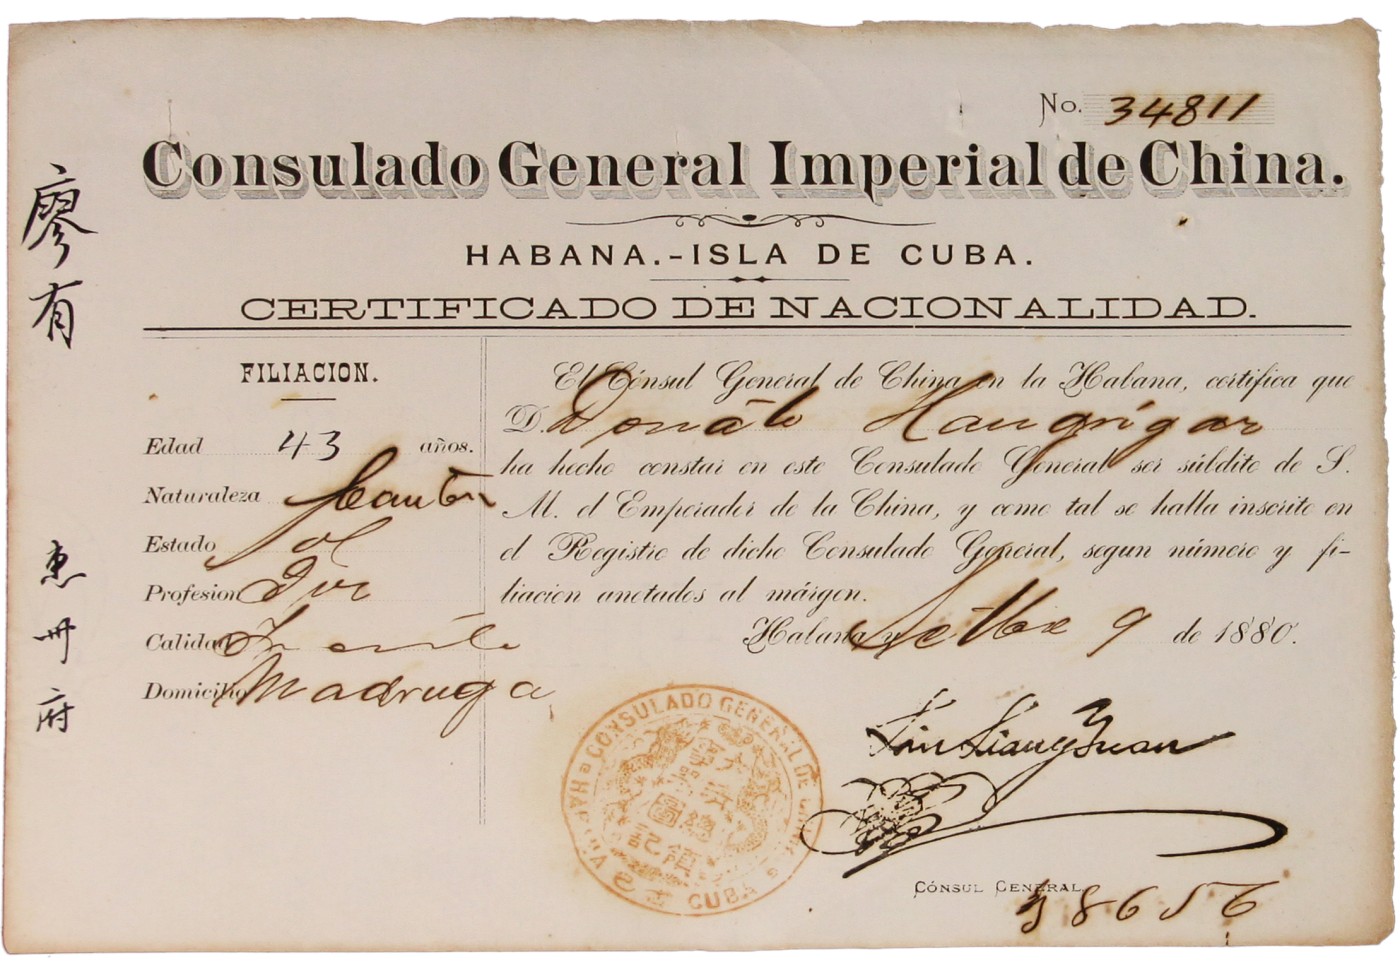 No. 34811
Consulado General Imperial de China.
HABANA.-ISLA DE CUBA.
CERTIFICADO DE NACIONALIDAD.
廖有
惠州府
FILIACION.
Edad 43 años.
Naturaleza Canton
Estado Sol
Profesion
Calidad
Domicilio Madruga
El Cónsul General de China en la Habana, certifica que
D. Donato
ha hecho constar en este Consulado General ser súbdito de S.
M. el Emperador de la China, y como tal se halla inscrito en
el Registro de dicho Consulado General, segun número y fi-
liacion anotados al márgen.
Habana y Setbre 9 de 1880.
CONSULADO GENERAL DE CHINA
HABANA
CUBA
大清國總領記
Liu Liang Yuan
CÓNSUL GENERAL
38656